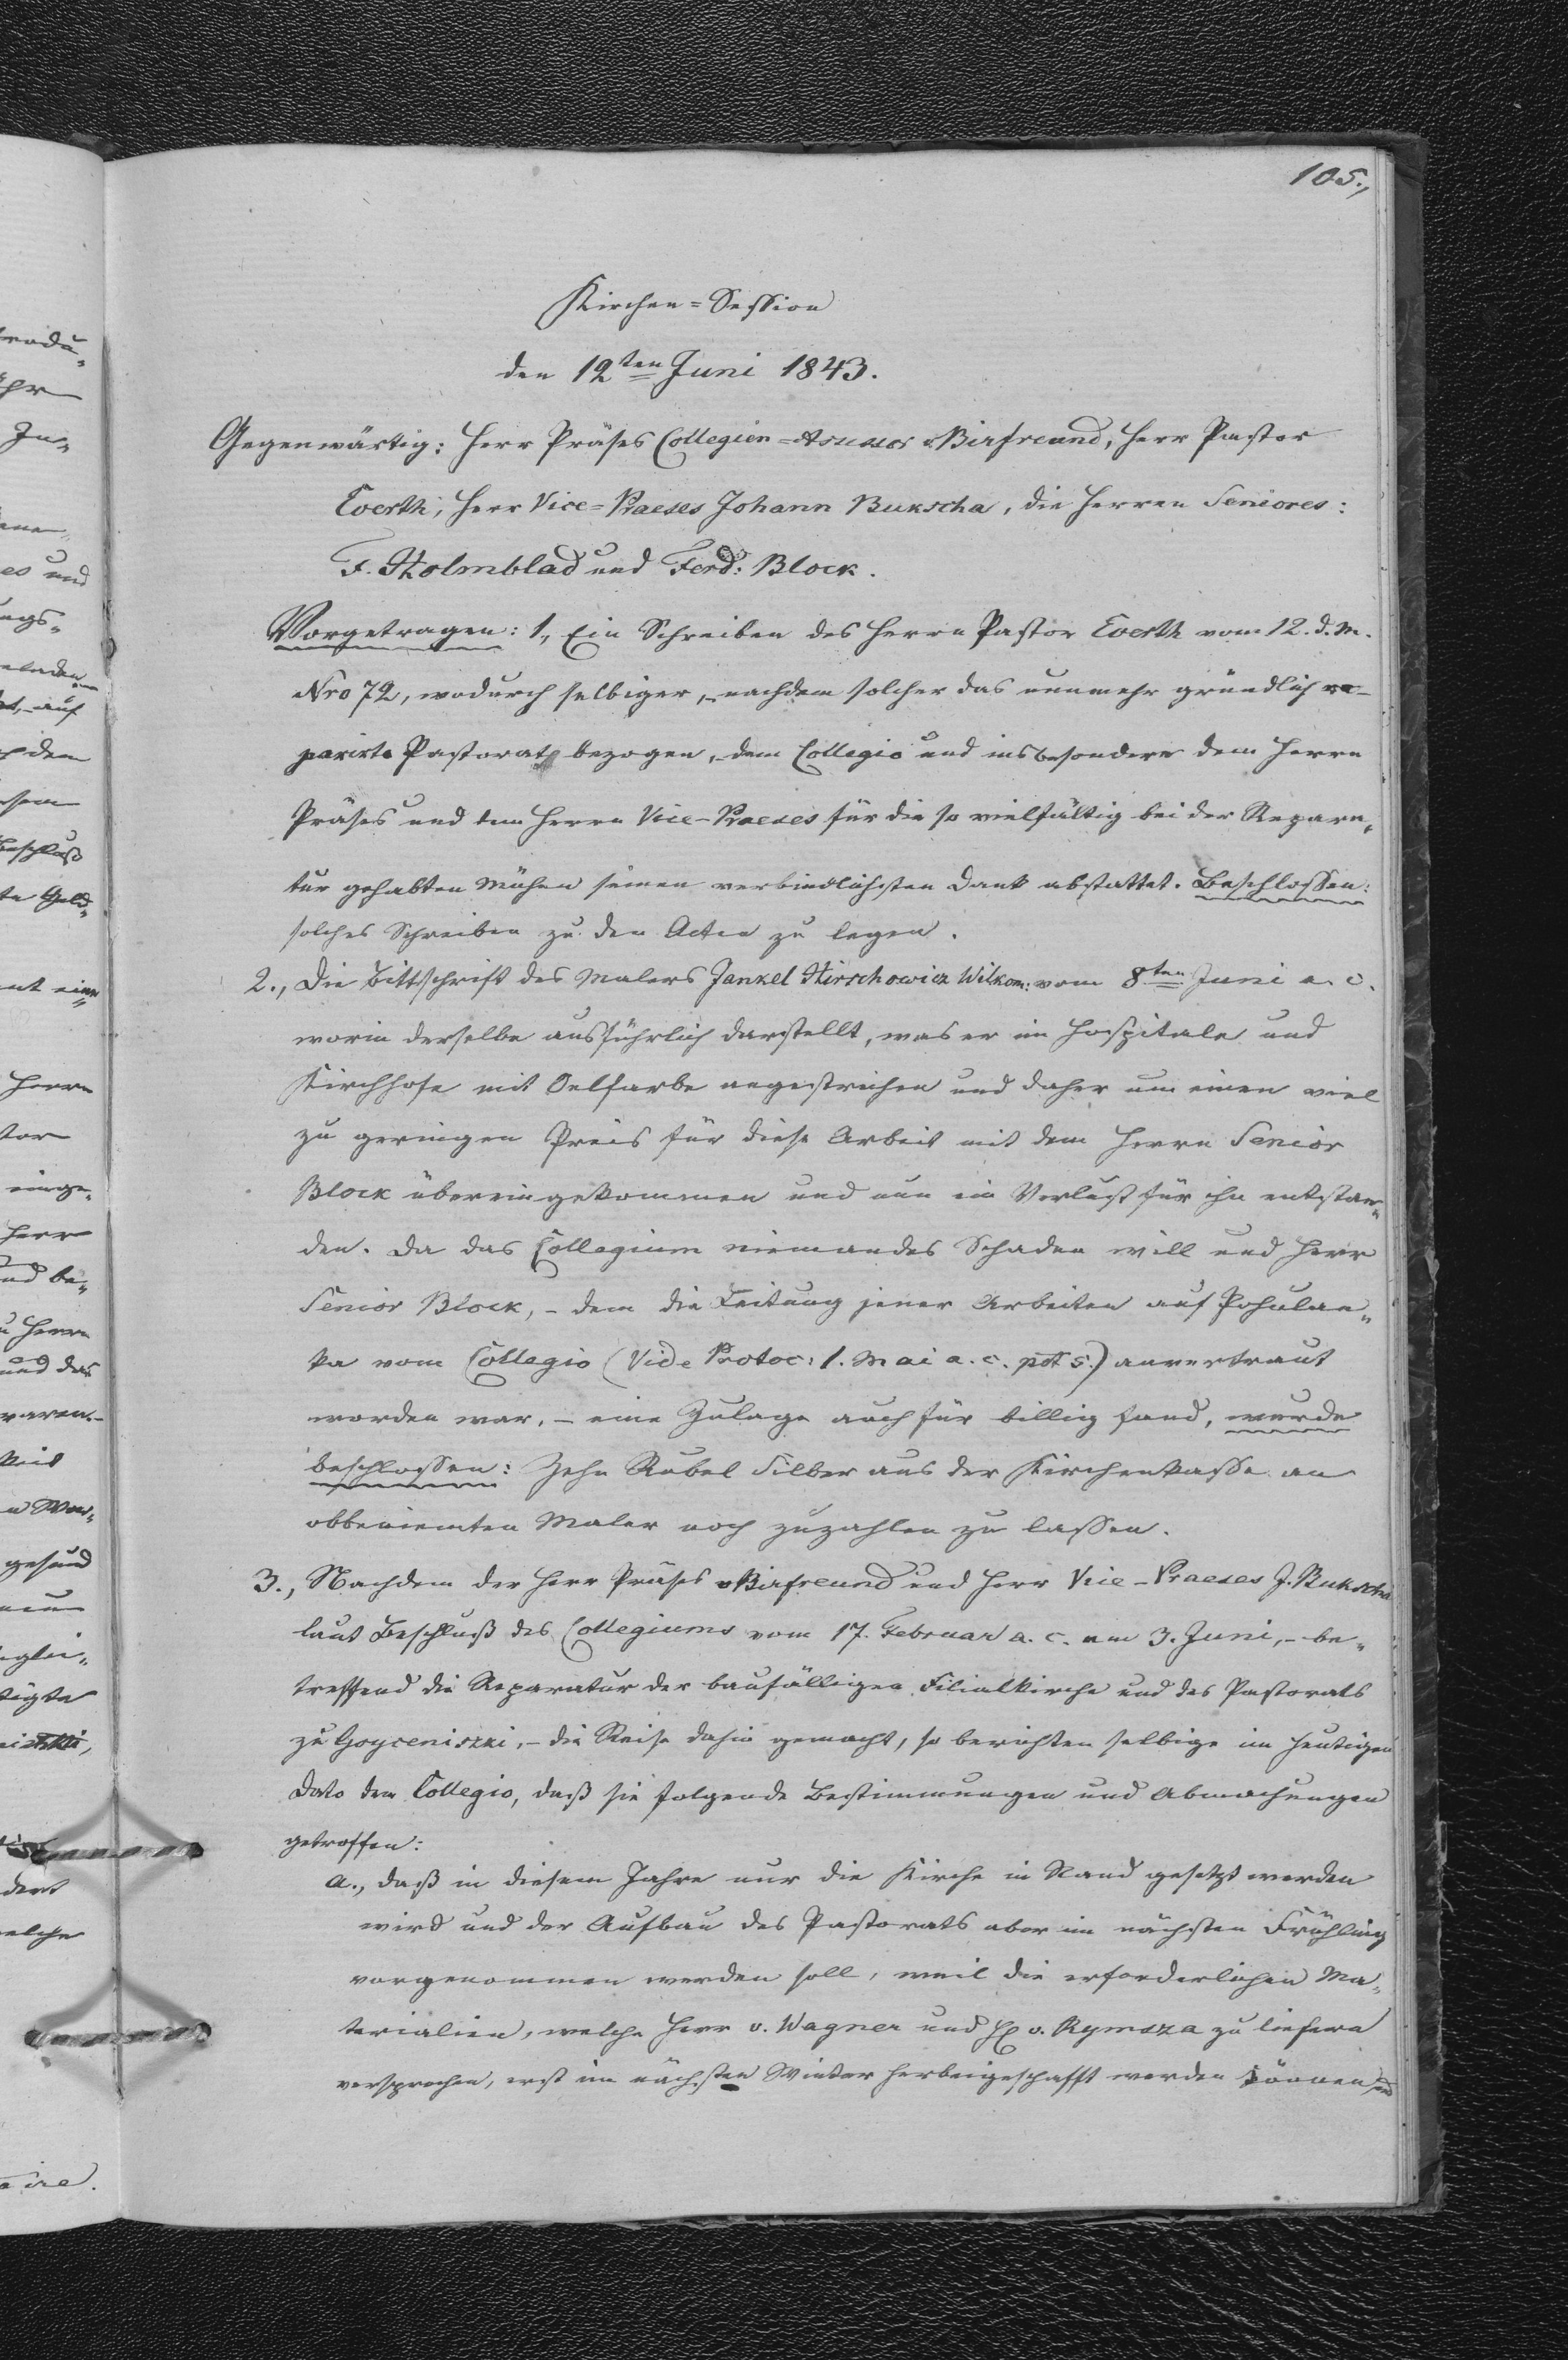 105.,
Kirchen=Session
den 12ten Juni 1843.
Gegenwärtig: Herr Präses Collegien=Assessor v. Birfreund, Herr Pastor
Everth, Herr Vice=Praeses Johann Bukscha, die Herren Seniores:
F. Holmblad und Ferd: Block.
Vorgetragen: 1., Ein Schreiben des Herrn Pastor Everth vom 12. d. M.
Nro 72, wodurch selbiger, nachdem solcher das nunmehr gründlich re-
parirte Pastorat bezogen, dem Collegio und insbesondere dem Herrn
Präses und dem Herrn Vice-Praeses für die so vielfältig bei der Repara-
tur gehabten Mühen seinen verbindlichsten Dank abstattet. Beschlossen:
solches Schreiben zu den Acten zu legen.
2., Die Bittschrift des Malers Jankel Hirschowicz Wilkom: vom 8ten Juni a. c.
worin derselbe ausführlich darstellt, was er im Hospitale und
Kirchhofe mit Oelfarbe angestrichen und daher um einen viel
zu geringen Preis für diese Arbeit mit dem Herrn Senior
Block übereingekommen und nun ein Verlust für ihn entstan-
den. Da das Collegium niemandes Schaden will und Herr
Senior Block, - dem die Leitung jener Arbeiten auf Pohulan-
ka vom Collegio (Vide Protoc: 1. Mai a. c. pct 5.) anvertraut
worden war, - eine Zulage auch für billig fand, wurde
beschlossen: Zehn Rubel Silber aus der Kirchenkasse an
obbeniemten Maler noch zuzahlen zu lassen.
3., Nachdem der Herr Präses v. Birfreund und Herr Vice-Praeses J. Bukscha
laut Beschluß des Collegiums vom 17. Februar a. c. am 3. Juni, - be-
treffend die Reparatur der baufälligen Filialkirche und des Pastorats
zu Goyceniszki, - die Reise dahin gemacht, so berichten selbige im heutigen
Dato dem Collegio, daß sie folgende Bestimmungen und Abmachungen
getroffen:
a., daß in diesem Jahre nur die Kirche in Stand gesetzt werden
wird und der Aufbau des Pastorats aber im nächsten Frühling
vorgenommen werden soll, weil die erforderlichen Ma-
terialien, welche Herr v. Wagner und H v. Rymsza zu liefern
versprochen, erst im nächsten Winter herbeigeschafft werden können,